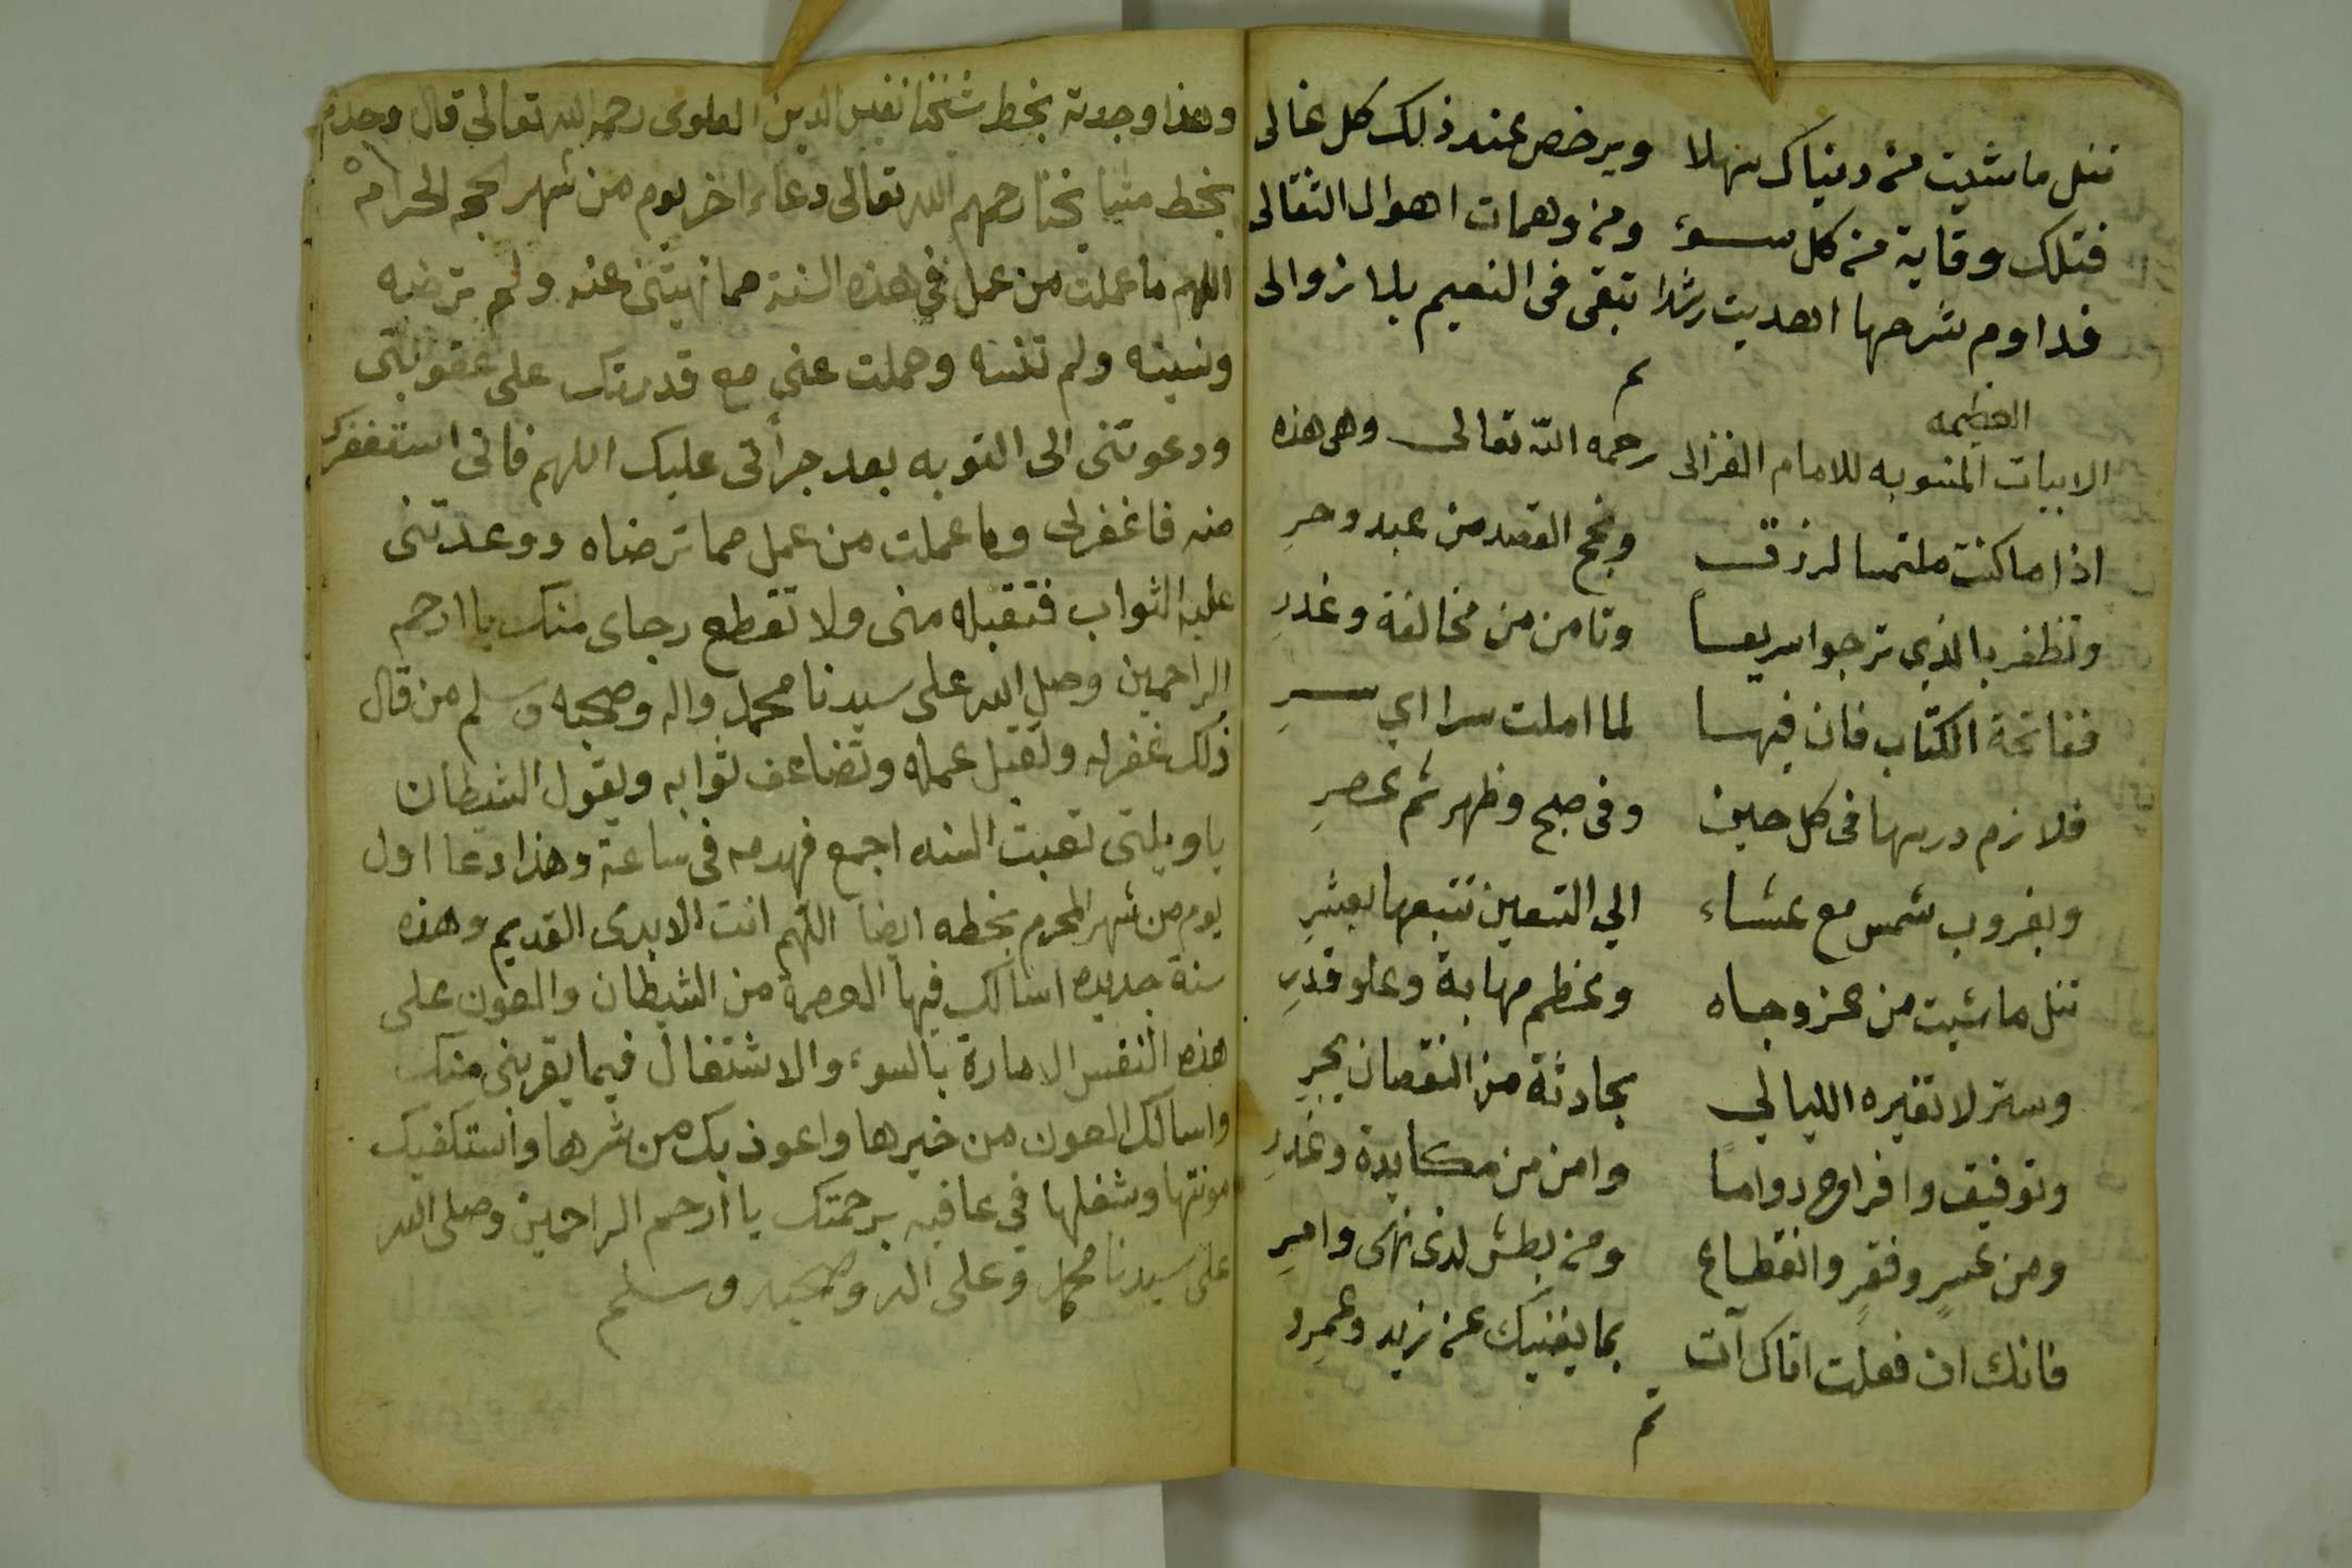 تنل ما شيت من دنياك سهلا ويرخص عند ذلك كل غالى
فتلك وقاية من كل سوء ومن وهمات اهوال الثقالى
فداوم شرحها اهديت رشدا تبقى فى النعيم بلا زوالى
تم
العظيمه
الابيات المنسوبه للامام الغزالى رحمه الله تعالى وهى هذه
اذا ما كنت ملتمسا لرزق ونجح القصد من عبد وحرِ
وتظفر بالذي ترجوا سريعا وتامن من مخالفة وغدرِ
ففاتحة الكتاب فان فيها لما املت سرا اي سرِ
فلازم درسها فى كل حين وفى صبح وظهر ثم عصرِ
وبغروب شمس مع عشاء الي التسعين تتبعها بعشرِ
تنل ما شيت من عز وجاه وعظم مهابة وعلو قدرِ
وستر لا تغيره الليالي بحادثة من النقصان يجرِ
وتوفيق وافراح دواما وامن من مكايدة وغدرِ
ومن عسرٍ وفقرٍ وانقطاع ومن بطش لذى نهى وامرِ
فانك ان فعلت اتاك آت بما يغنيك عن زيد وعمرِو
تم
وهذا وجدته بخط شيخنا نفيس الدين العلوى رحمه الله تعالى قال وجدت
بخط مشايخنا رحمهم الله تعالى دعاء اخر يوم من شهر الحجه الحرام
اللهم ما عملت من عمل في هذه السنة مما نهيتني عنه ولم ترضه
ونسيته ولم تنسه وحملت عني مع قدرتك على عقوبتى
ودعوتنى الى التوبه بعد جرأتى عليك اللهم فانى استغفرك
منه فاغفرلى وما عملت من عمل مما ترضاه ووعدتنى
عليه الثواب فتقبله منى ولا تقطع رجاى منك يا ارحم
الراحمين وصل الله على سيدنا محمد واله وصحبه وسلم من قال
ذلك غفر له وتقبل عمله وتضاعف ثوابه ويقول الشيطان
يا ويلتى تعبت السنه اجمع فهدمه فى ساعة وهذا دعا اول
يوم من شهر المحرم بخطه ايضا اللهم انت الابدى القديم وهذه
سنة جديده اسالك فيها العصمة من الشيطان والعون على
هذه النفس الامارة بالسوء والاشتغال فيما يقربنى منك
واسالك العون من خيرها واعوذ بك من شرها واستكفيك
مونتها وشغلها في عافيه برحمتك يا أرحم الراحمين وصلى الله
على سيدنا محمد وعلى اله وصحبه وسلم